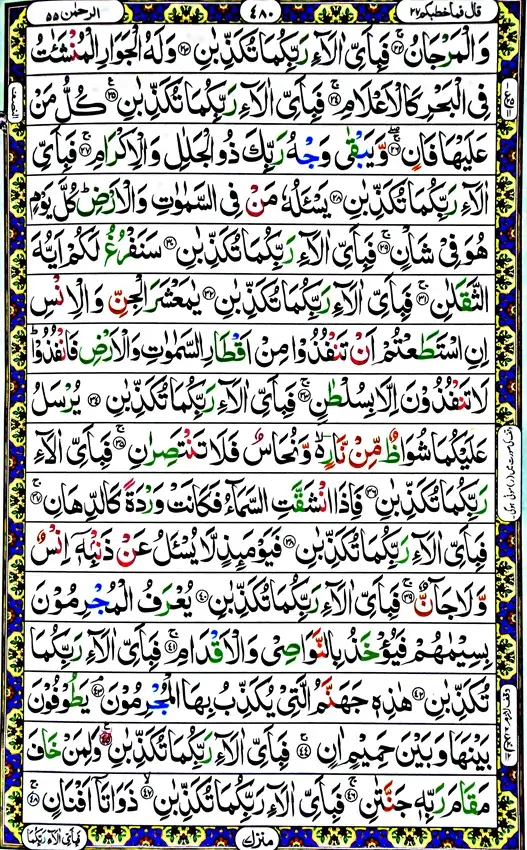 قال فما خطبکم ۲۷
۴۸۰
الرحمٰن ۵۵
وَالْمَرْجَانُ ۚ﴿۲۲﴾ فَبِاَیِّ اٰلَآءِ رَبِّکُمَا تُکَذِّبٰنِ ﴿۲۳﴾ وَلَهُ الْجَوَارِ الْمُنْشَئٰتُ
فِی الْبَحْرِ کَالْاَعْلَامِ ۚ﴿۲۴﴾ فَبِاَیِّ اٰلَآءِ رَبِّکُمَا تُکَذِّبٰنِ ﴿۲۵﴾ کُلُّ مَنْ
عَلَیْهَا فَانٍ ۚ﴿۲۶﴾ وَّیَبْقٰی وَجْهُ رَبِّکَ ذُو الْجَلٰلِ وَالْاِکْرَامِ ۚ﴿۲۷﴾ فَبِاَیِّ
اٰلَآءِ رَبِّکُمَا تُکَذِّبٰنِ ﴿۲۸﴾ یَسْـَٔلُهٗ مَنْ فِی السَّمٰوٰتِ وَالْاَرْضِ ؕ کُلَّ یَوْمٍ
هُوَ فِیْ شَاْنٍ ۚ﴿۲۹﴾ فَبِاَیِّ اٰلَآءِ رَبِّکُمَا تُکَذِّبٰنِ ﴿۳۰﴾ سَنَفْرُغُ لَکُمْ اَیُّهَ
الثَّقَلٰنِ ۚ﴿۳۱﴾ فَبِاَیِّ اٰلَآءِ رَبِّکُمَا تُکَذِّبٰنِ ﴿۳۲﴾ یٰمَعْشَرَ الْجِنِّ وَالْاِنْسِ
اِنِ اسْتَطَعْتُمْ اَنْ تَنْفُذُوْا مِنْ اَقْطَارِ السَّمٰوٰتِ وَالْاَرْضِ فَانْفُذُوْا ؕ
لَا تَنْفُذُوْنَ اِلَّا بِسُلْطٰنٍ ۚ﴿۳۳﴾ فَبِاَیِّ اٰلَآءِ رَبِّکُمَا تُکَذِّبٰنِ ﴿۳۴﴾ یُرْسَلُ
عَلَیْکُمَا شُوَاظٌ مِّنْ نَّارٍ ۙ۬ وَّنُحَاسٌ فَلَا تَنْتَصِرٰنِ ۚ﴿۳۵﴾ فَبِاَیِّ اٰلَآءِ
رَبِّکُمَا تُکَذِّبٰنِ ﴿۳۶﴾ فَاِذَا انْشَقَّتِ السَّمَآءُ فَکَانَتْ وَرْدَةً کَالدِّهَانِ ۚ﴿۳۷﴾
فَبِاَیِّ اٰلَآءِ رَبِّکُمَا تُکَذِّبٰنِ ﴿۳۸﴾ فَیَوْمَئِذٍ لَّا یُسْـَٔلُ عَنْ ذَنْۢبِهٖۤ اِنْسٌ
وَّلَا جَآنٌّ ۚ﴿۳۹﴾ فَبِاَیِّ اٰلَآءِ رَبِّکُمَا تُکَذِّبٰنِ ﴿۴۰﴾ یُعْرَفُ الْمُجْرِمُوْنَ
بِسِیْمٰهُمْ فَیُؤْخَذُ بِالنَّوَاصِیْ وَالْاَقْدَامِ ۚ﴿۴۱﴾ فَبِاَیِّ اٰلَآءِ رَبِّکُمَا
تُکَذِّبٰنِ ﴿۴۲﴾ هٰذِهٖ جَهَنَّمُ الَّتِیْ یُکَذِّبُ بِهَا الْمُجْرِمُوْنَ ۘ﴿۴۳﴾ یَطُوْفُوْنَ
بَیْنَهَا وَبَیْنَ حَمِیْمٍ اٰنٍ ۚ﴿۴۴﴾ فَبِاَیِّ اٰلَآءِ رَبِّکُمَا تُکَذِّبٰنِ ﴿۴۵﴾ وَلِمَنْ خَافَ
مَقَامَ رَبِّهٖ جَنَّتٰنِ ۚ﴿۴۶﴾ فَبِاَیِّ اٰلَآءِ رَبِّکُمَا تُکَذِّبٰنِ ﴿۴۷﴾ ذَوَاتَاۤ اَفْنَانٍ ۚ﴿۴۸﴾
منزل
فَبِاَیِّ اٰلَآءِ رَبِّکُمَا